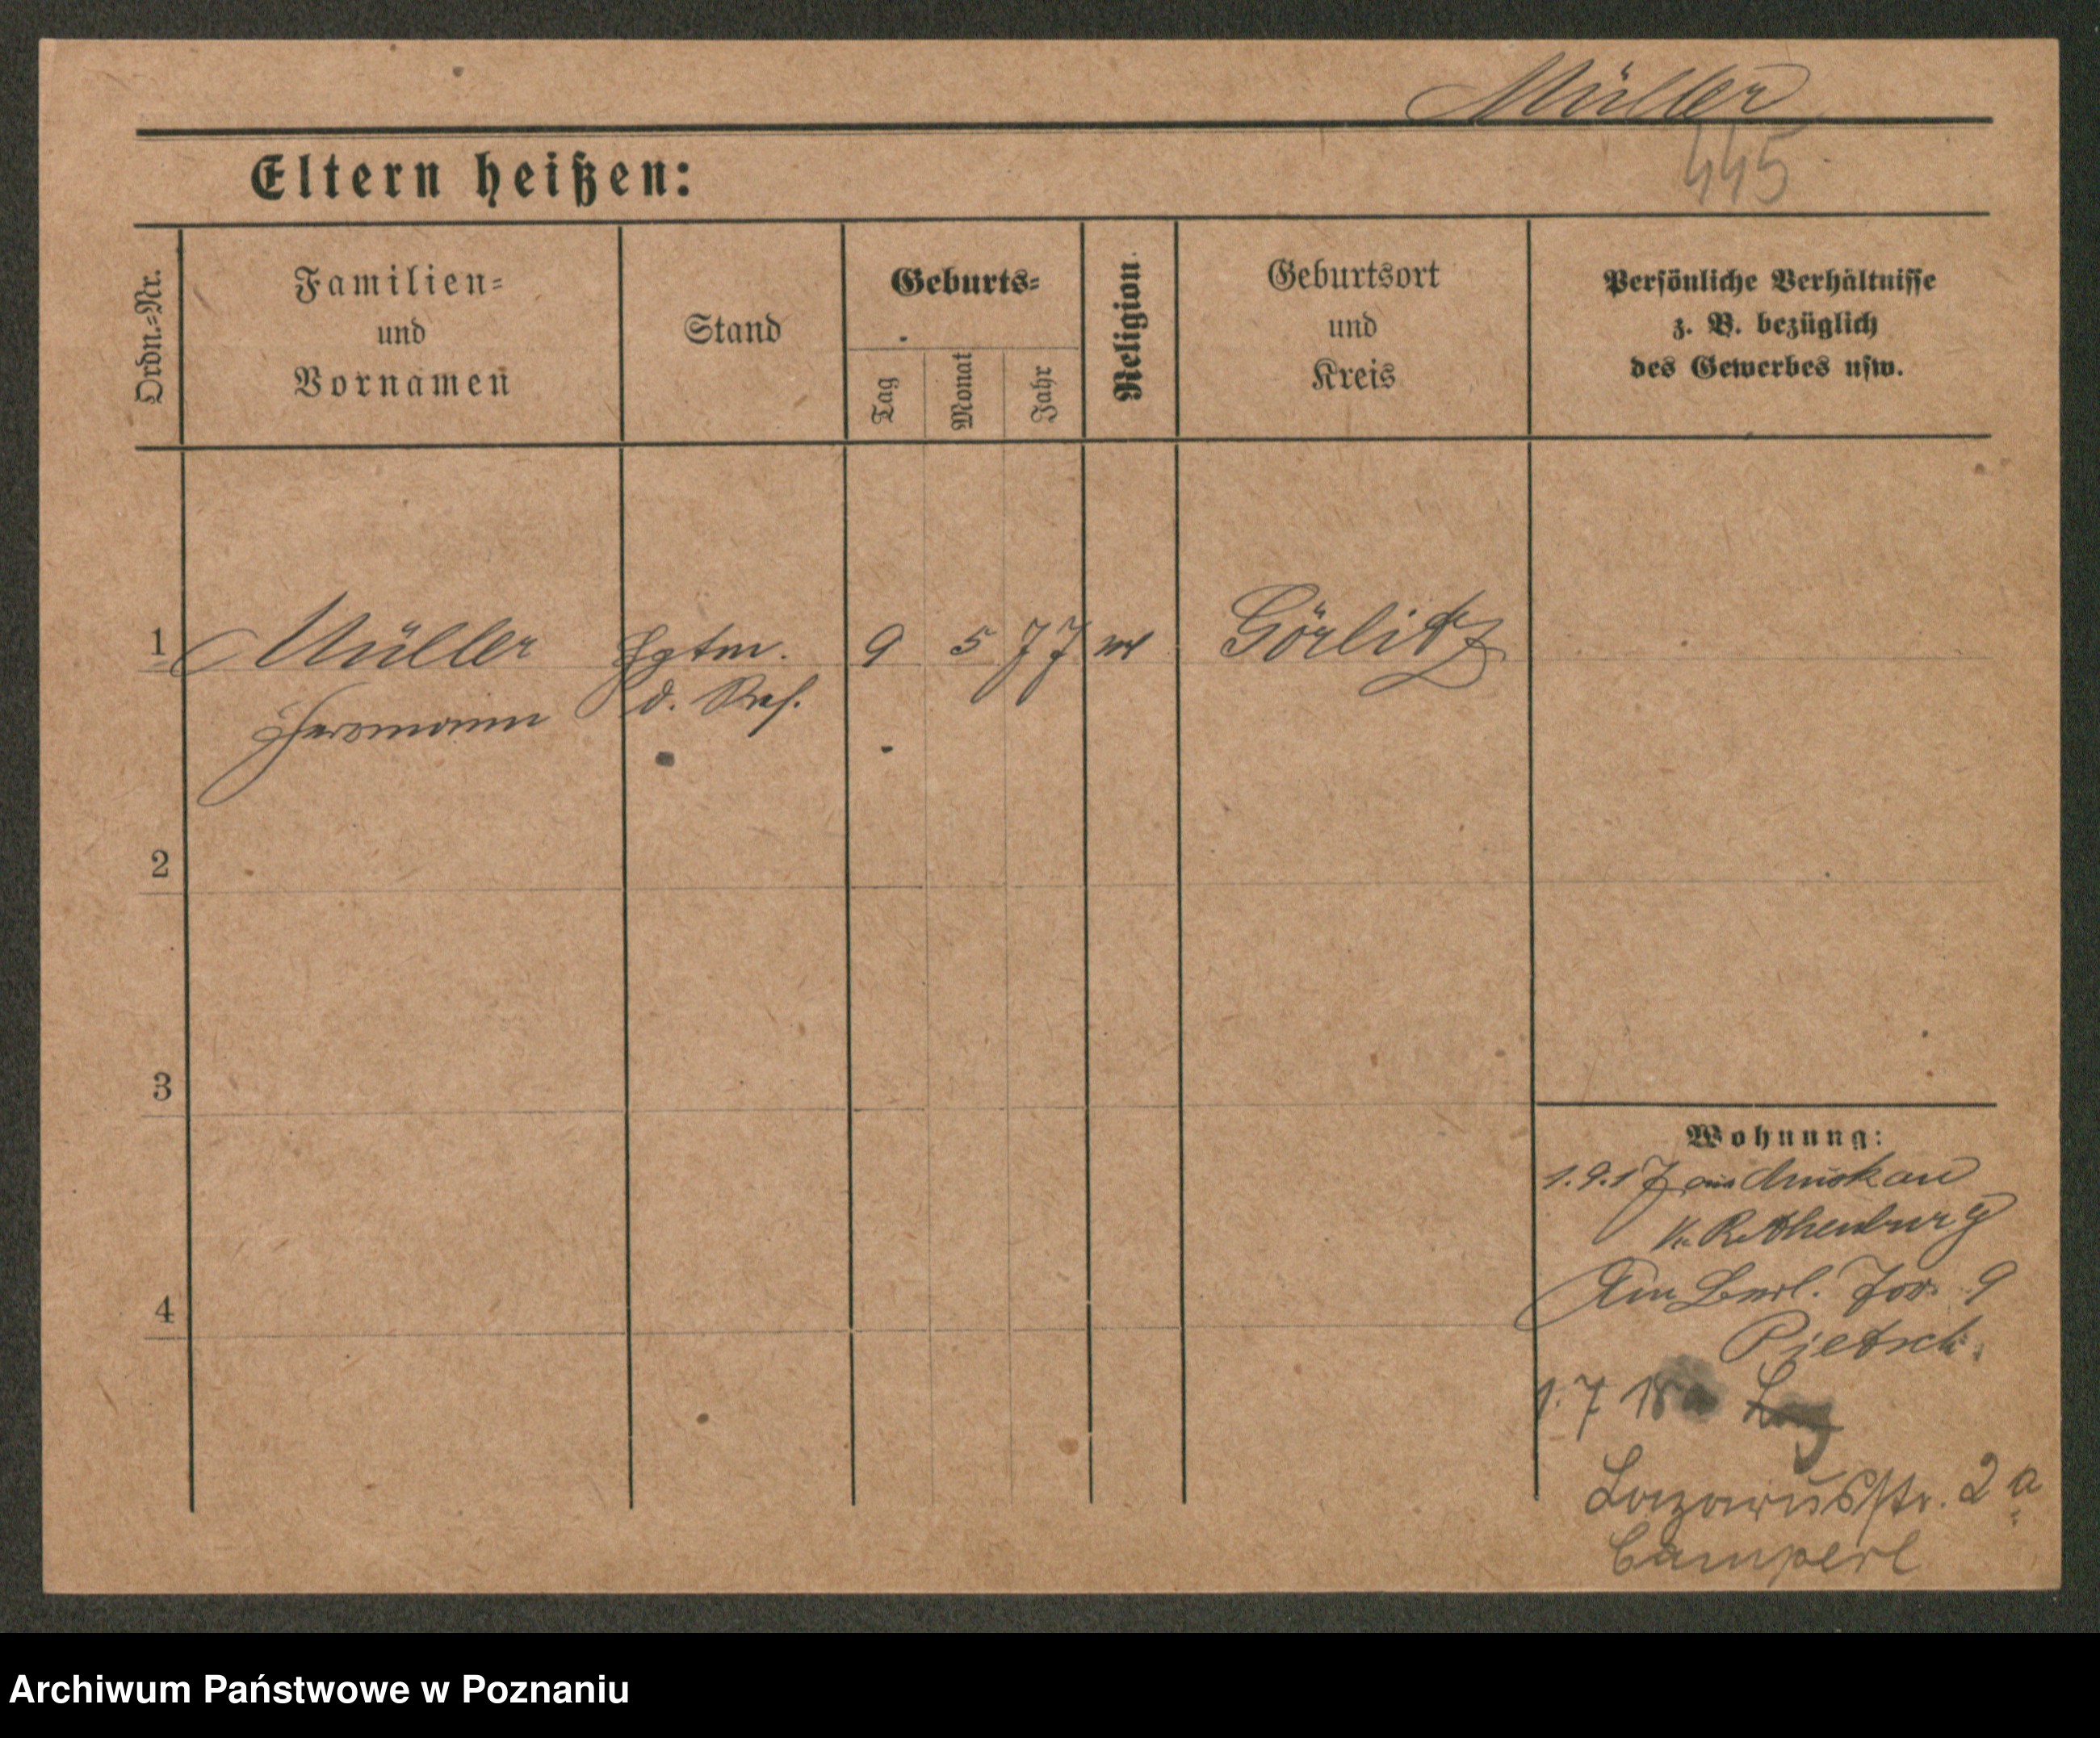 Müller
445
Eltern heißen:
Ordn.-Nr.
Familien-
und
Vornamen
Stand
Geburts-
Tag
Monat
Jahr
Religion.
Geburtsort
und
Kreis
Persönliche Verhältnisse
z. B. bezüglich
des Gewerbes usw.
1 Müller Hptm. 9 5 77 ev Görlitz
Hermann d. Res.
2
3
4
Wohnung:
1.9.17 aus Muskau
Kr. Rothenburg
Am Berl. Tor 9
Pietsch.
1.7 18
Lazarusstr. 2a
Camperl